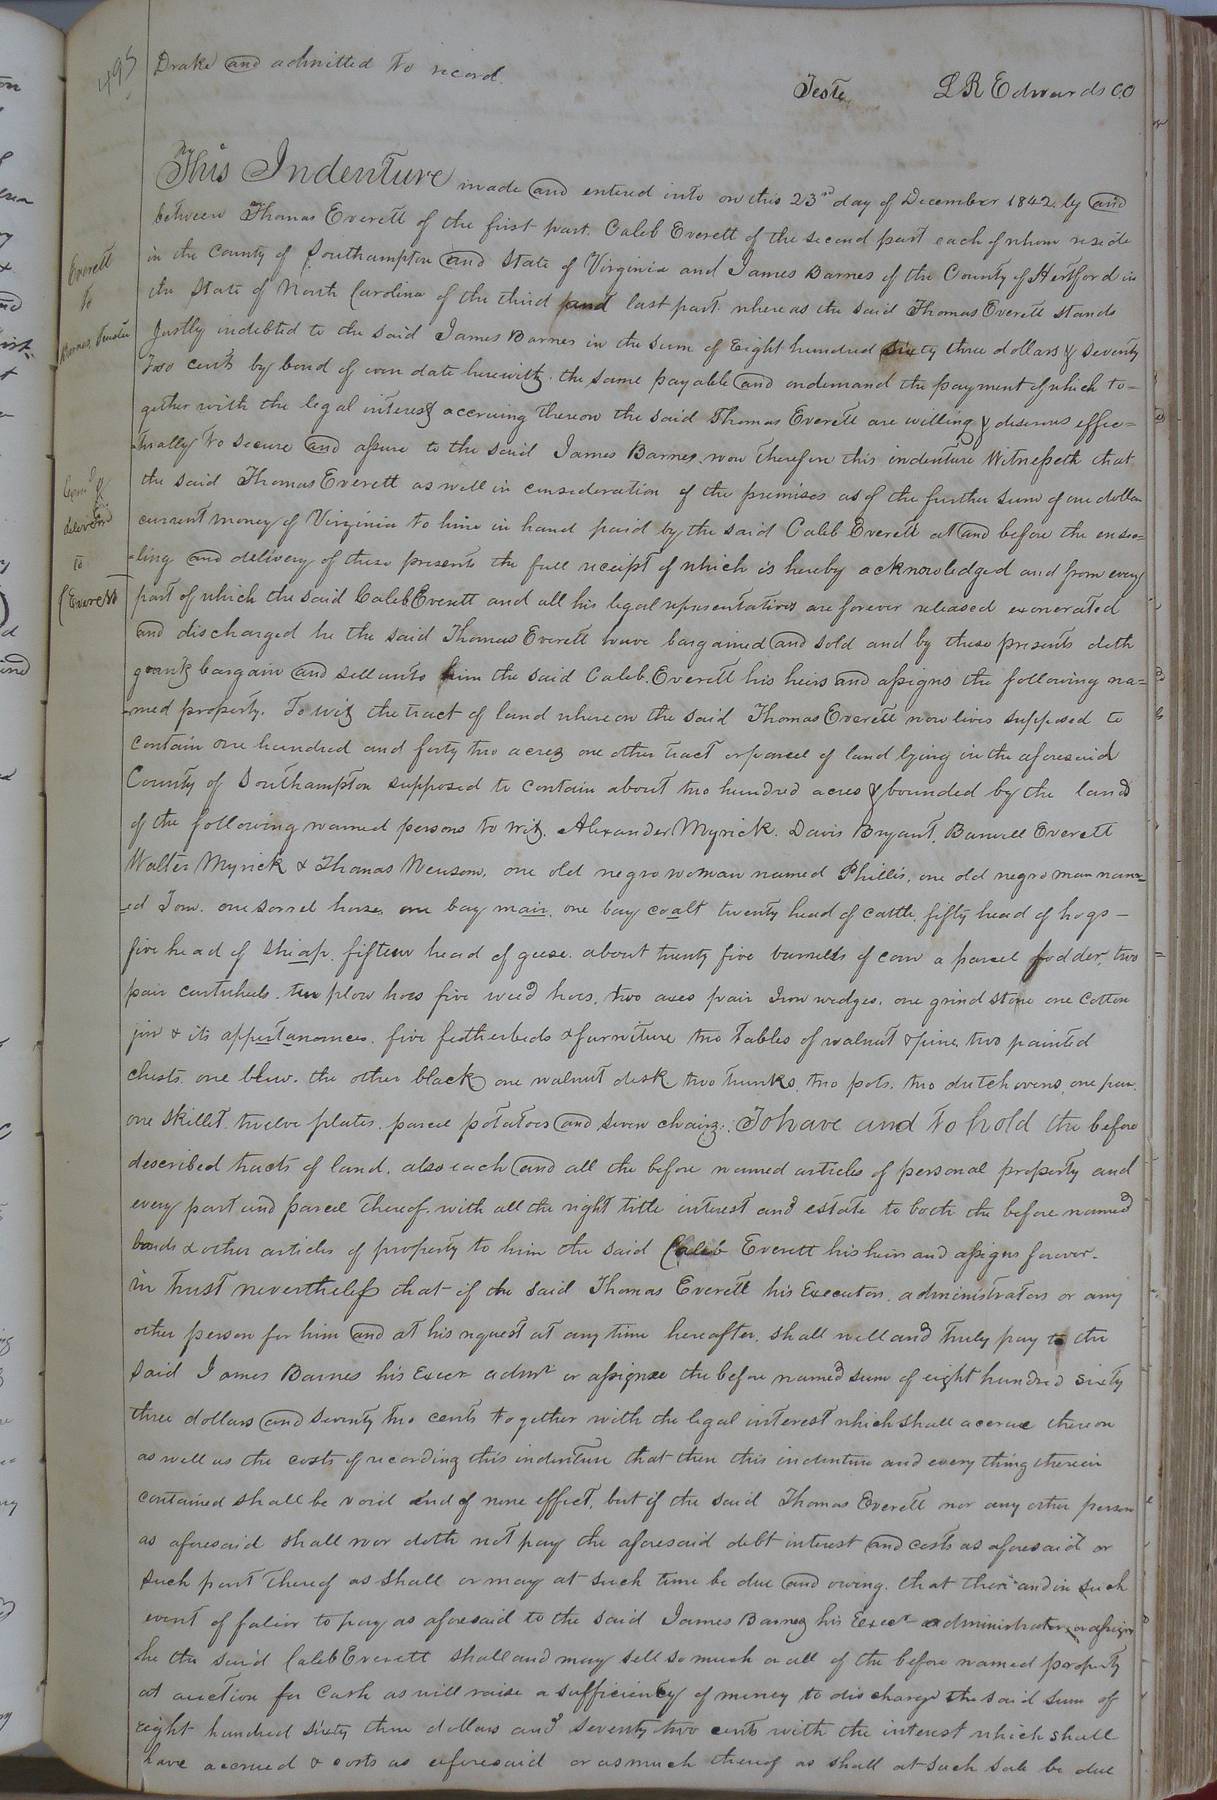 495
Drake and admitted to record.
Teste L R Edwards CC
This Indenture made and entered into on this 23rd day of December 1842. by and
between Thomas Everett of the first part. Caleb Everett of the second part each of whom reside
in the County of Southampton and State of Virginia and James Barnes of the County of Hertford in
the State of North Carolina of the third and last part. whereas the said Thomas Everett stands
Justly indebted to the said James Barnes in the sum of Eight hundred sixty three dollars & seventy
two cents by bond of even date herewith. the same payable and ondemand the payment of which to-
gether with the legal interest accruing thereon the said Thomas Everett are willing & desirous effec=
-tually to secure and assure to the said James Barnes. now therefore this indenture Witnesseth that
the said Thomas Everett as well in consideration of the premises as of the further sum of one dollar
current money of Virginia to him in hand paid by the said Caleb Everett at and before the ensea=
-ling and delivery of these presents the full receipt of which is hereby acknowledged and from every
part of which the said Caleb Everett and all his legal representatives are forever released exonerated
and discharged he the said Thomas Everett have bargained and sold and by these presents doth
grant bargain and sell unto him the said Caleb. Everett his heirs and assigns the following na=
-med property. To wit the tract of land whereon the said Thomas Everett now lives supposed to
contain one hundred and forty two acres one other tract or parcel of land lying in the aforesaid
County of Southampton supposed to contain about two hundred acres & bounded by the lands
of the following named persons to wit. Alexander Myrick. Davis Bryant. Barwell Everett
Walter Myrick & Thomas Newsom. one old negro woman named Phillis. one old negro man nam=
=ed Tom. one sorrel horse one bay mair. one bay coalt twenty head of cattle. fifty head of hogs -
five head of sheap. fifteen head of geese. about twenty five barrells of corn a parcel fodder. two
pair cartwheels. ten plow hoes five weed hoes. two axes pair Iron wedges. one grind stone one cotton
jin & its appertanances. five featherbeds & furniture two tables of walnut & pine two painted
chests. one blew. the other black one walnut desk. two trunks. two pots. two dutch ovens one pan.
one skillet. twelve plates. parcel potatoes and seven chairs. To have and to hold the before
described tracts of land. also each and all the before named articles of personal property and
every part and parcel thereof. with all the right title interest and estate to both the before named
lands & other articles of property to him the said Caleb Everett his heirs and assigns forever.
in trust nevertheless that if the said Thomas Everett his Executors. administrators or any
other person for him and at his request at any time hereafter. shall well and truly pay to the
said James Barnes his Execr admr or assignee the before named sum of eight hundred sixty
three dollars and seventy two cents together with the legal interest which shall accrue thereon
as well as the costs of recording this indenture that then this indenture and every thing therein
contained shall be void and of none effect. but if the said Thomas Everett nor any other person
as aforesaid shall nor doth not pay the aforesaid debt interest and costs as aforesaid or
such part thereof as shall or may at such time be due and owing. that then and in such
event of falior to pay as aforesaid to the said James Barnes his Execr administrators or assigns
he the said Caleb Everett shall and may sell so much or all of the before named property
at auction for cash as will raise a sufficiency of money to discharge the said sum of
eight hundred sixty three dollars and seventy two cents with the interest which shall
have accrued & costs as aforesaid or as much thereof as shall at such sale be due
Everett
To
Barnes, Trustee
delivered
to
C Everett